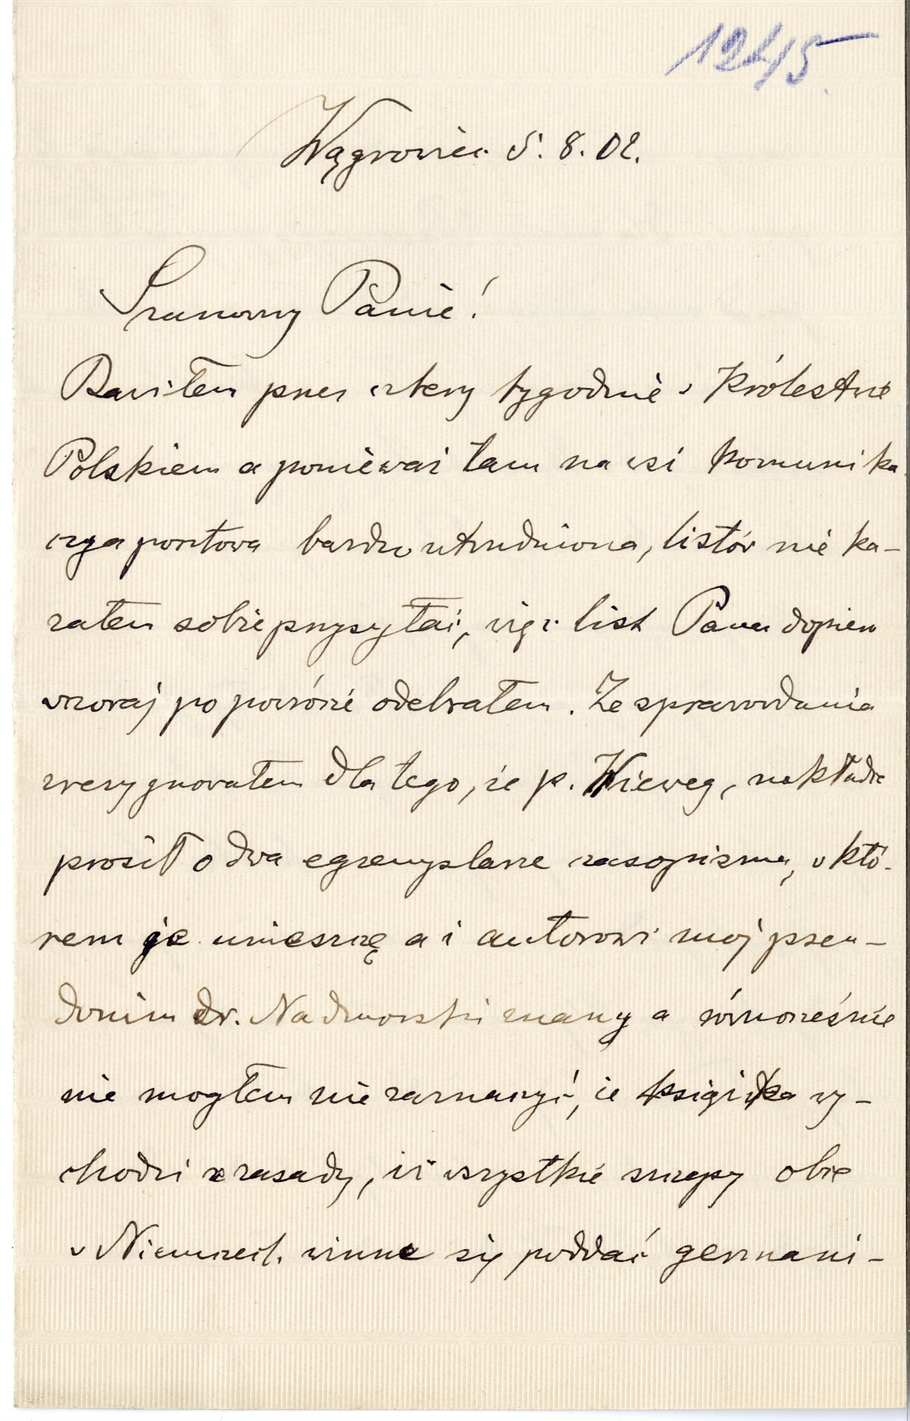 1245
Wągrowiec 5. 8. 02.
Szanowny Panie!
Bawiłem przez cztery tygodnie w Królestwie
Polskiem a ponieważ tam na wsi komunika
cya pocztowa bardzo utrudniona, listów nie ka-
załem sobie przysyłać, więc list Pana dopiero
wczoraj po powrócie odebrałem. Ze sprawozdania
zrezygnowałem dla tego, że p. Wieweg, nakładca
prosił o dwa egzemplarze czasopisma, w któ-
rem je umieszczę a i autorowi mój pseu-
donim dr. Nadmorski znany a równocześnie
nie mogłem nie zaznaczyć, że książka wy-
chodzi z zasady, iż wszystkie szczepy obce
w Niemczech winne się poddać germani-